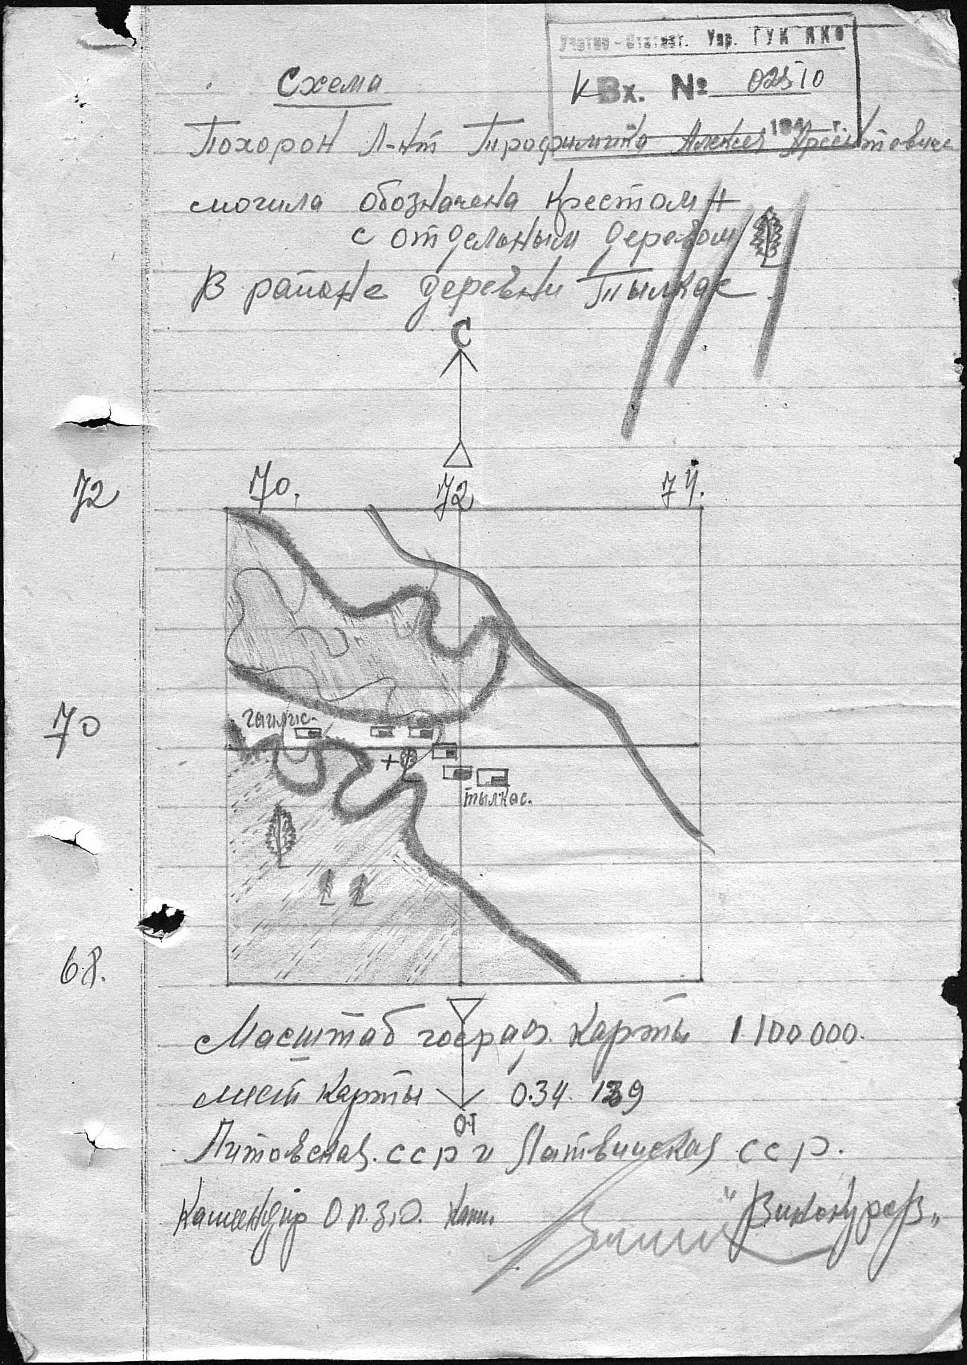 Учетно-Статист. Упр. ГУК НКО
Вх. № 02510
194 г.
Схема
Похорон Л-нт Трофимкина Алексея
могила обозначена крестом +
с отдельным деревом
В районе деревни Тылкас
С
72 70. 72 74.
70
тылкас.
68.
Масштаб географ. карты 1 100000.
лист карты 0.34. 139
Литовская. ССР и Латвийская ССР.
Командир О.П.З.О. Кап. "Винокуров"